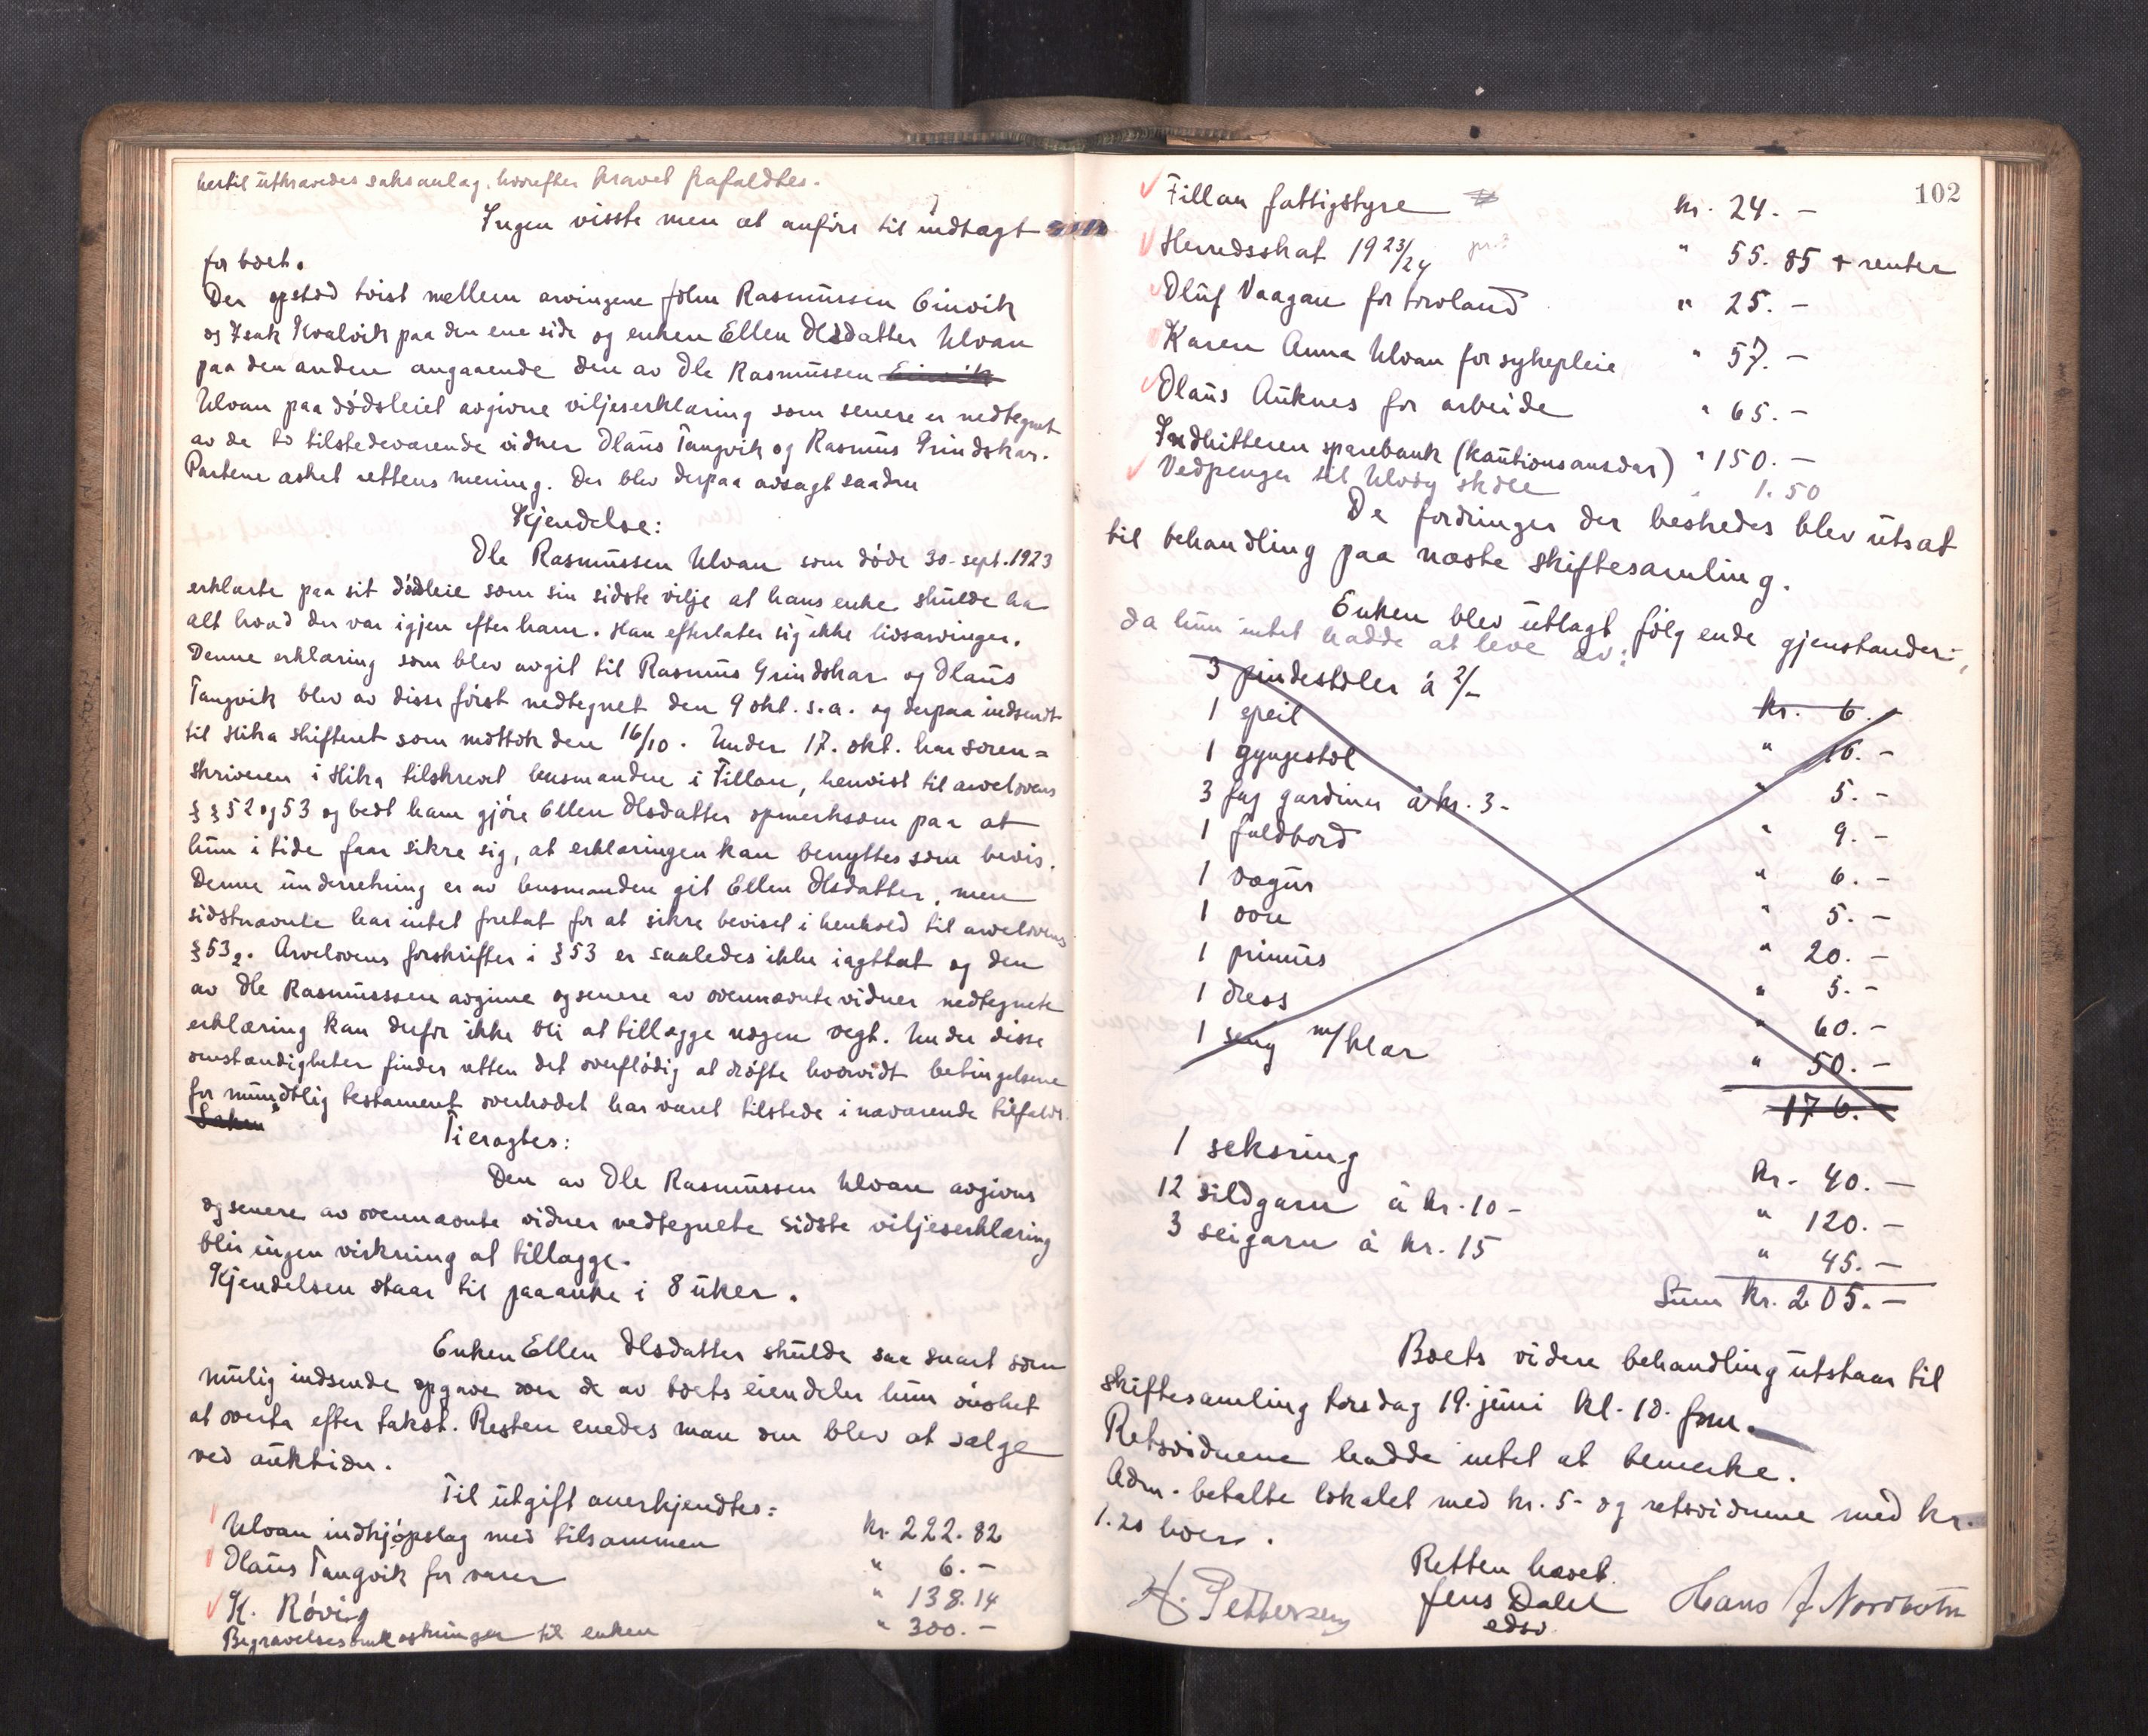 hertil utkrævedes saksanlag, hvorefter kravet frafaldtes.
Ingen visste men at anføre til indtægt
for boet.
Der opstod tvist mellem arvingene John Rasmussen Einvik
og Isak Kvalvik paa den ene side og enken Ellen Olsdatter Ulvan
paa den anden angaaende den av Ole Rasmussen Einvik
Ulvan paa dødsleiet avgivne viljeserklæring som senere er nedtegnet
av de to tilstedeværende vidner Olaus Tangvik og Rasmus Grindskar.
Partene æsket rettens mening. Der blev derpaa avsagt saadan
Kjendelse:
Ole Rasmussen Ulvan som døde 30. sept. 1923
erklærte paa sit dødsleie som sin sidste vilje at hans enke skulde ha
alt hvad der var igjen efter ham. Han efterlater sig ikke livsarvinger.
Denne erklæring som blev avgit til Rasmus Grindskar og Olaus
Tangvik blev av disse først nedtegnet den 9 okt. s.a. og derpaa indsendt
til Hitra skifteret som mottok den 16/10. Under 17. okt. har soren=
skriveren i Hitra tilskrevet lensmanden i Fillan, henvist til arvelovens
§§ 52 og 53 og bedt ham gjøre Ellen Olsdatter opmerksom paa at
hun i tide faar sikre sig, at erklæringen kan benyttes som bevis.
Denne underretning er av lensmanden git Ellen Olsdatter, men
sidstnævnte har intet foretat for at sikre beviset i henhold til arvelovens
§ 53₂. Arvelovens forskrifter i § 53 er saaledes ikke iagttat og den
av Ole Rasmusssen avgivne og senere av ovennævnte vidner nedtegnete
erklæring kan derfor ikke bli at tillægge nogen vegt. Under disse
omstændigheter finder retten det overflødig at drøfte hvorvidt betingelsene
for mundtlig testament overhodet har været tilstede i nærværende tilfælde.
Saken
Ti eragtes:
Den av Ole Rasmussen Ulvan avgivne
og senere av ovennævnte vidner nedtegnete sidste viljeserklæring
blir ingen virkning at tillægge.
Kjendelsen staar til paaanke i 8 uker.
Enken Ellen Olsdatter skulde saa snart som
mulig indsende opgave over de av boets eiendeler hun ønsket
at overta efter takst. Resten enedes man om blev at sælge
ved auktion.
Til utgift anerkjendtes:
Ulvan indkjøpslag med tilsammen kr. 222.82
Olaus Tangvik for varer " 6.-
K. Røvig " 138.14
Begravelsesomkostninger til enken " 300.-
102
Fillan fattigstyre kr. 24.-
Herredsskat 1923/24 " 55.85 + renter
Oluf Vaagan for torvland " 25.-
Karen Anna Ulvan for sykepleie " 57.-
Olaus Auknes for arbeide " 65.-
Indhitteren sparebank (kautionsansvar) " 150.-
Vedpenger til Ulvøy skole " 1.50
De fordringer der bestredes blev utsat
til behandling paa næste skiftesamling.
Enken blev utlagt følgende gjenstander:
da hun intet hadde at leve av:
3 pindestoler á 2/- kr. 6.-
1 speil " 16.-
1 gyngestol " 5.-
3 fag gardiner à kr. 3- " 9.-
1 foldbord " 6.-
1 vægur " 5.-
1 ovn " 20.-
1 primus " 5.-
1 dress " 60.-
1 seng m/klær " 50.-
176.-
1 seksring kr. 40.-
12 sildgarn á kr. 10- " 120.-
3 seigarn á kr. 15 " 45.-
Sum kr. 205.-
Boets videre behandling utstaar til
skiftesamling torsdag 19. juni kl. 10. fm.
Retsvidnene hadde intet at bemerke.
Adm. betalte lokalet med kr. 5- og retsvidnene med kr.
1.20 hver.
Retten hævet.
H. Pettersen Jens Dalel Hans J Nordbotn
edsv.